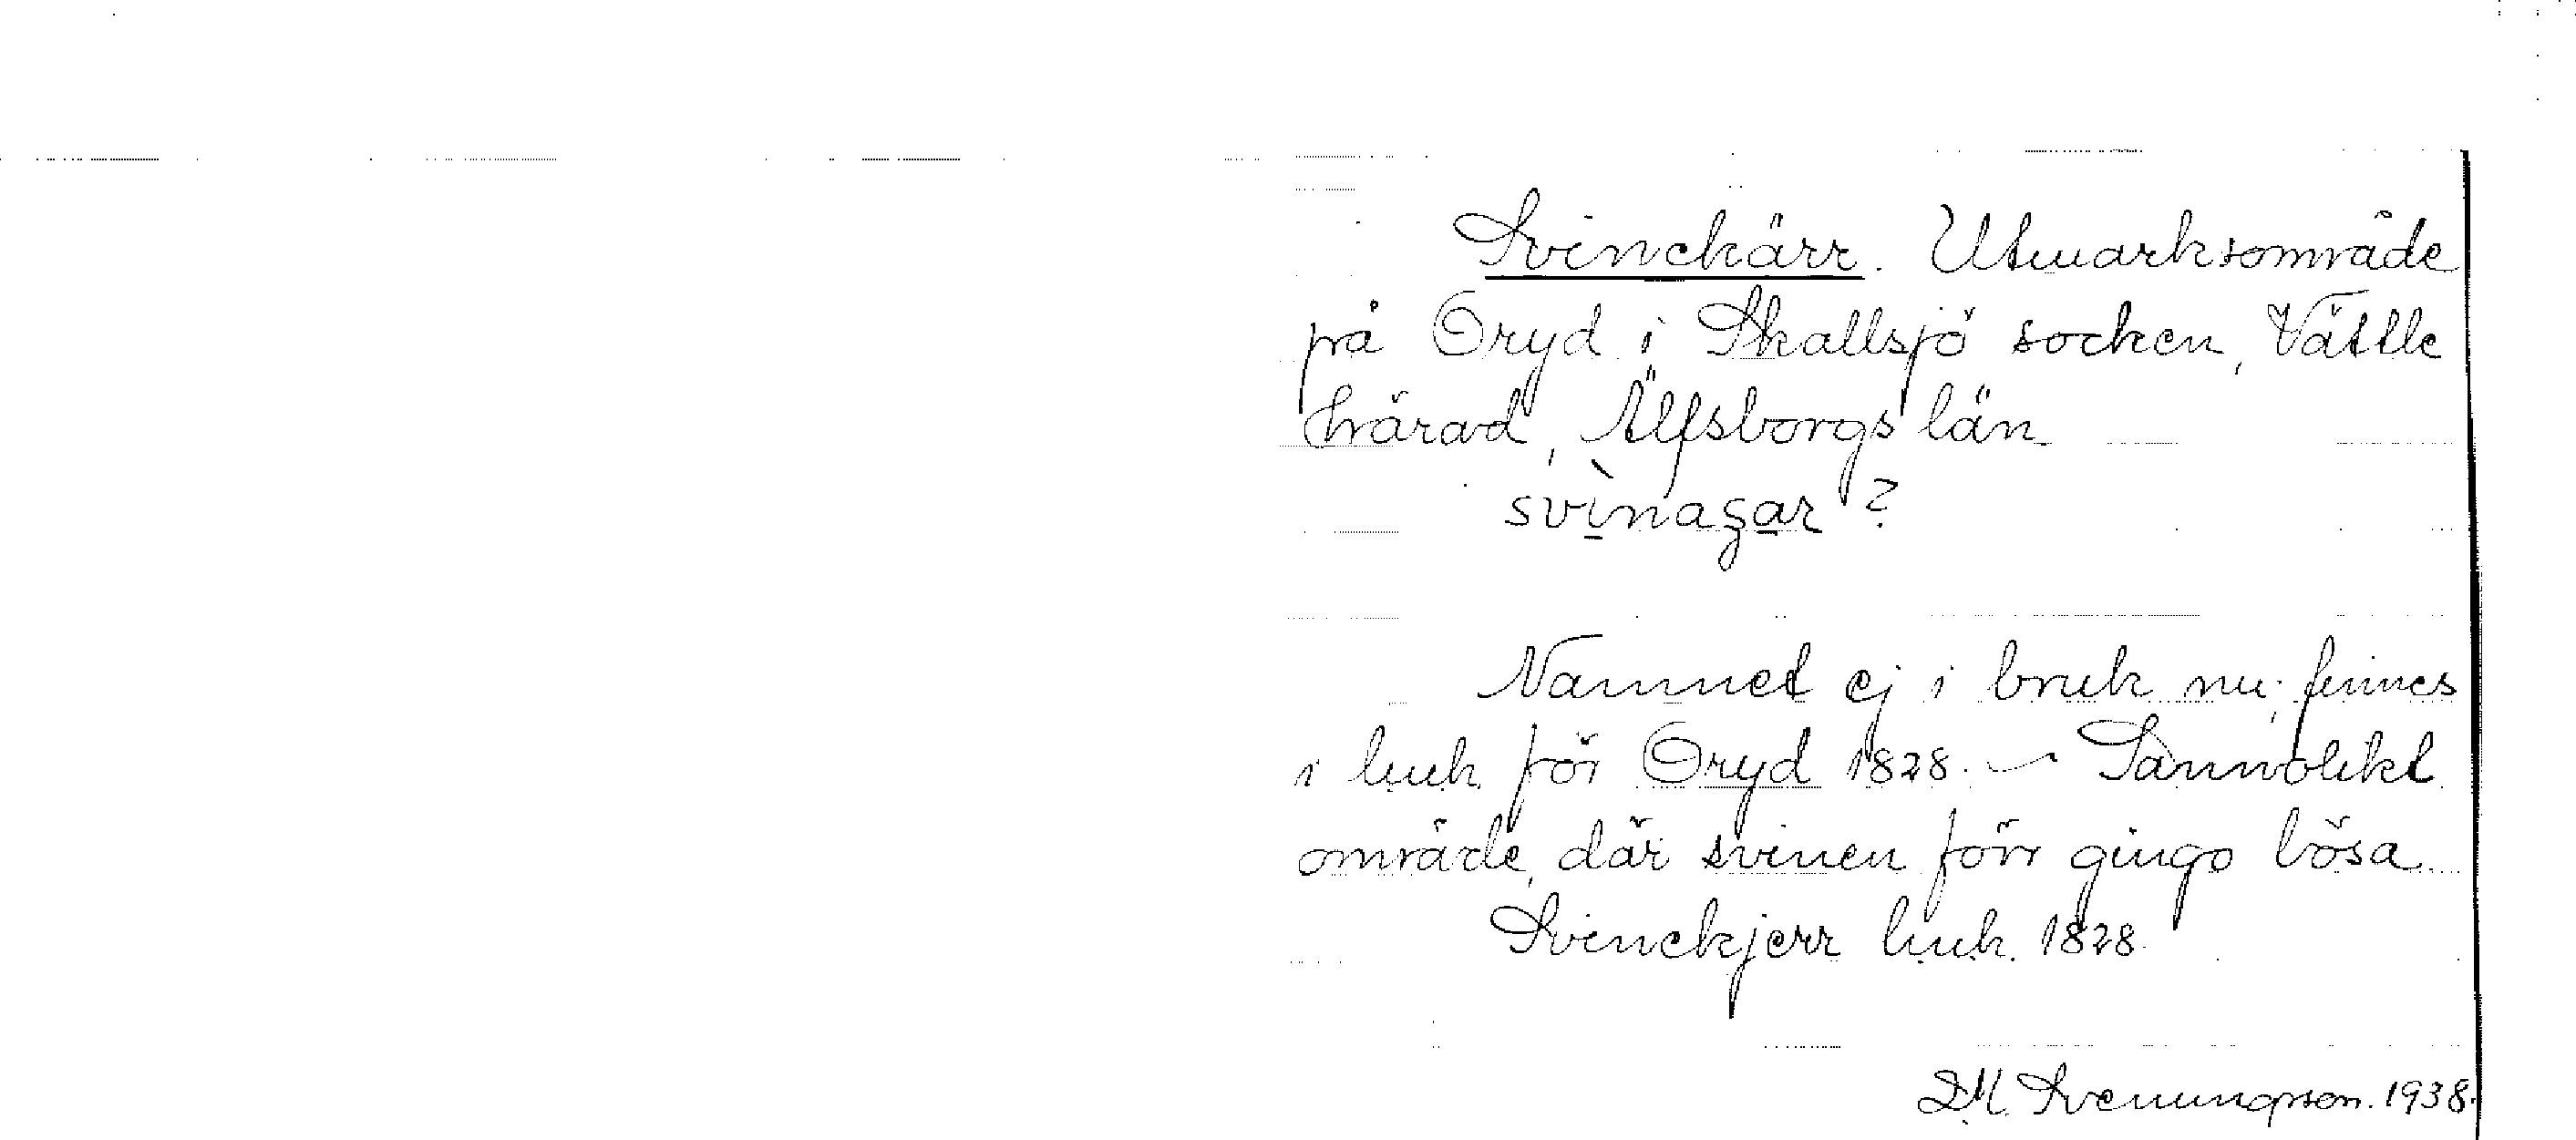 Svinekärr. Utmarksområde
på Öryd i Skallsjö socken, Vättle
härad, Älfsborgs län
svìnaꞩar ?
Namnet ej i bruk nu; finnes
i luuk för Öryd 1828. – Sannolikt
område, där svinen förr gingo lösa.
Svinekjerr luuk. 1828.
D.M. Svenungsson. 1938.